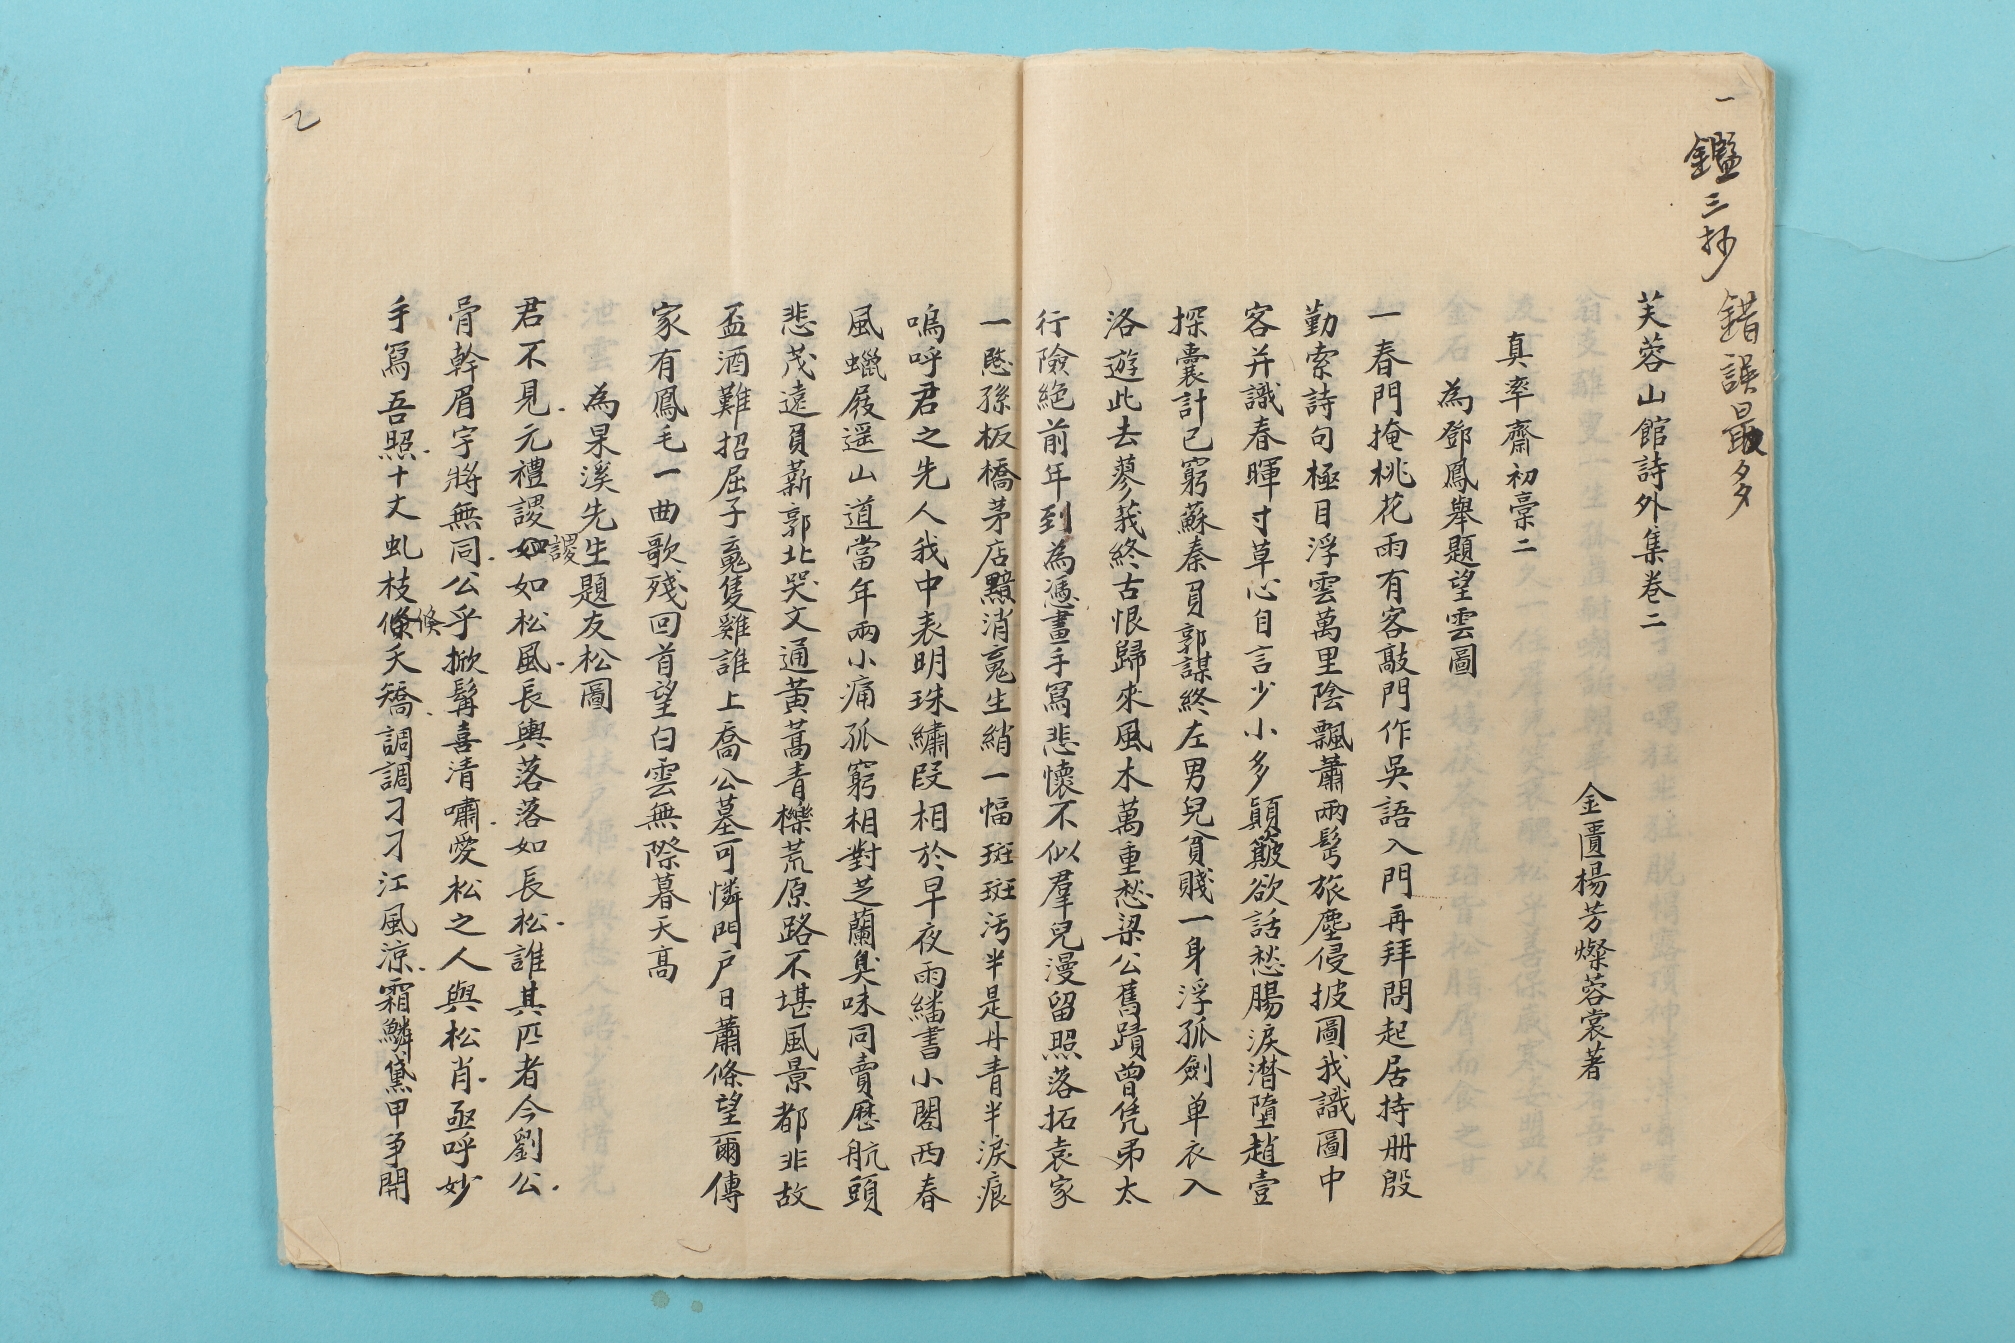 一
鑑三抄
錯誤最多
芙蓉山館詩外集卷二
金匱楊芳燦蓉裳著
真率齋初稾二
為鄧鳳舉題望雲圖
一春門掩桃花雨有客敲門作吳語入門再拜問起居持册殷
勤索詩句極目浮雲萬里陰飄蕭兩髩旅塵侵披圖我識圖中
客并識春暉寸草心自言少小多顛簸欲話愁腸淚潜墮趙壹
探囊計已窮蘇秦負郭謀終左男兒貧賤一身浮孤劍单衣入
洛遊此去蓼莪終古恨歸來風木萬重愁梁公舊蹟曾凭弔太
行險絶前年到為憑畫手寫悲懷不似羣兒漫留照落拓袁家
一愍孫板橋茅店黯消䰟生綃一幅斑斑汚半是丹青半淚痕
嗚呼君之先人我中表明珠繡段相於早夜雨繙書小閣西春
風蠟屐遥山道當年兩小痛孤窮相對芝蘭臭味同賣歷航頭
悲茂遠負薪郭北哭文通黄蒿青櫟荒原路不堪風景都非故
盃酒難招屈子䰟隻雞誰上喬公墓可憐門戸日蕭條望爾傳
家有鳳毛一曲歌殘回首望白雲無際暮天高
為杲溪先生題友松圖
君不見元禮謖謖如松風長輿落落如長松誰其匹者今劉公
骨幹眉宇將無同公乎掀髯喜清嘯愛松之人與松肖亟呼妙
手寫吾照十丈虬枝倐夭矯調調刁刁江風涼霜鱗黛甲争開